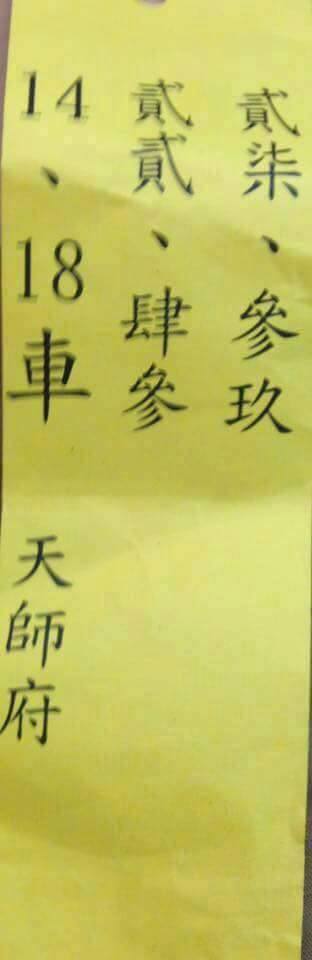 貳柒、參玖
貳貳、肆參
14、18車 天師府